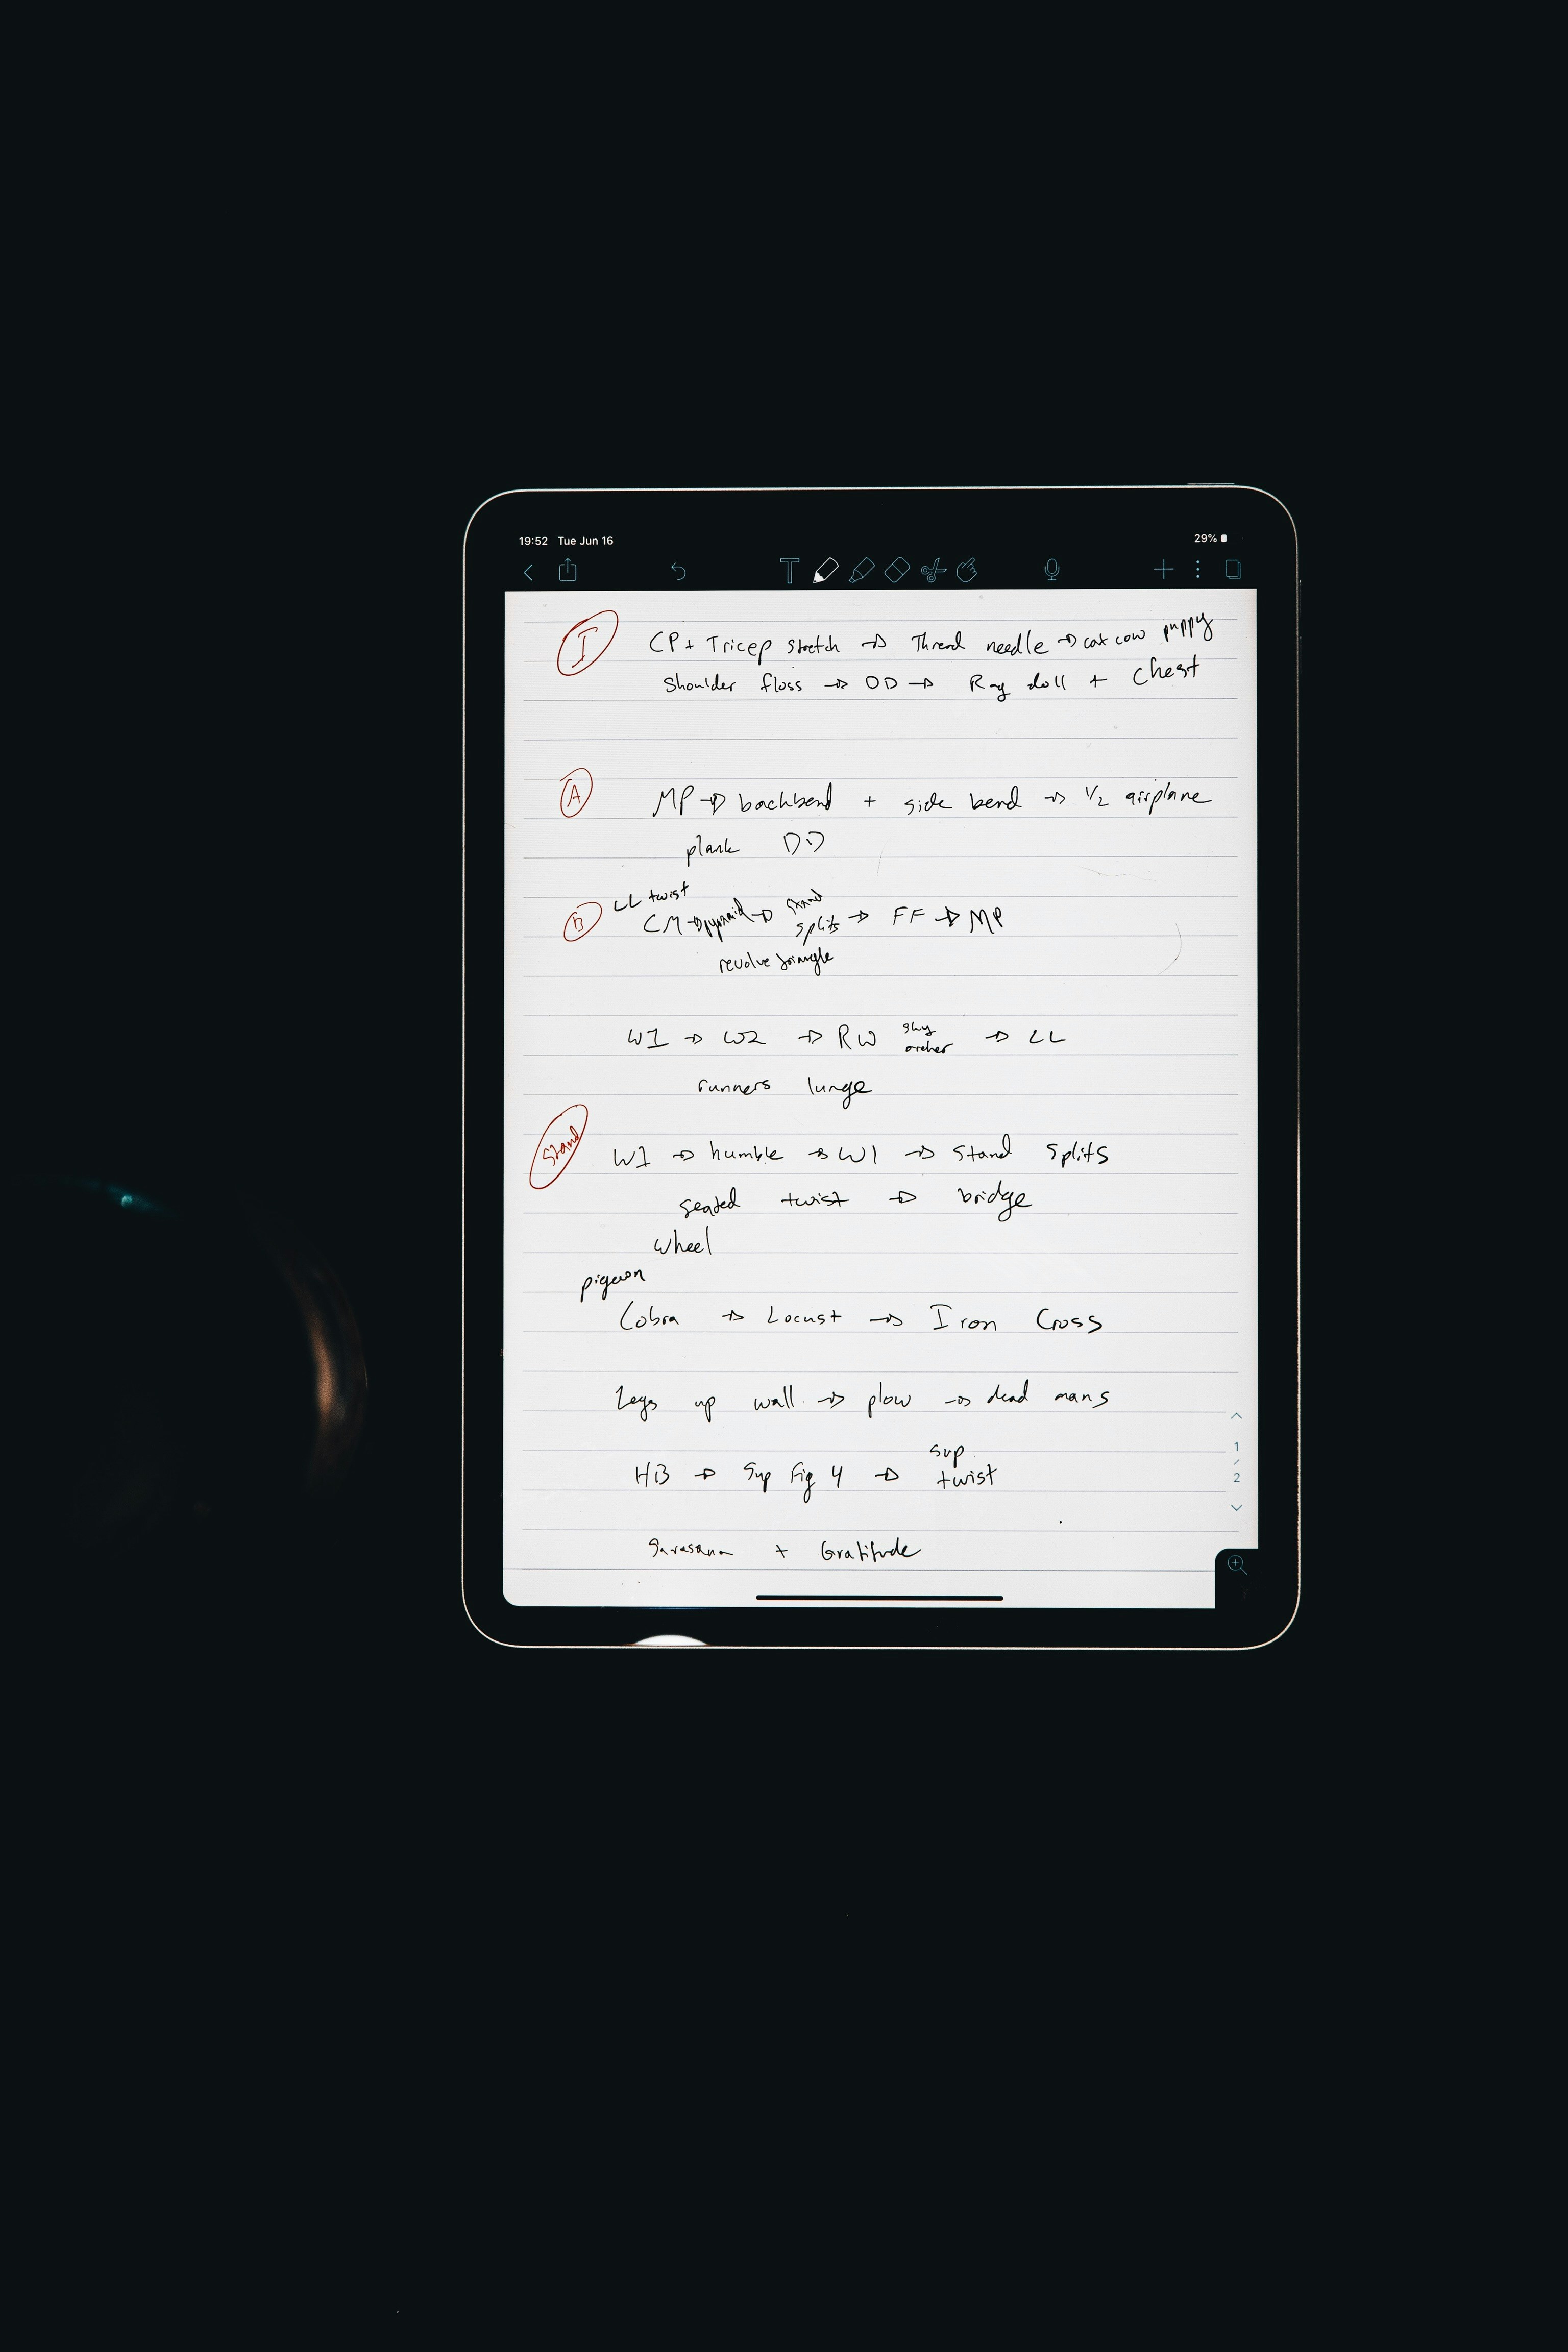 19:52 Tue Jun 16 29%
I CP + Tricep stretch → Thread needle → cat cow puppy
Shoulder floss → DD → Rag doll + Chest
A MP → backbend + side bend → 1/2 airplane
plank DD
LL twist
B CM → pyramid → stand splits → FF → MP
revolve triangle
W1 → W2 → RW sky archer → LL
runners lunge
Stand W1 → humble → W1 → stand splits
seated twist → bridge
wheel
pigeon
Cobra → Locust → Iron Cross
Legs up wall → plow → dead mans
1/2
HB → Sup Fig 4 → sup twist
Savasana + Gratitude